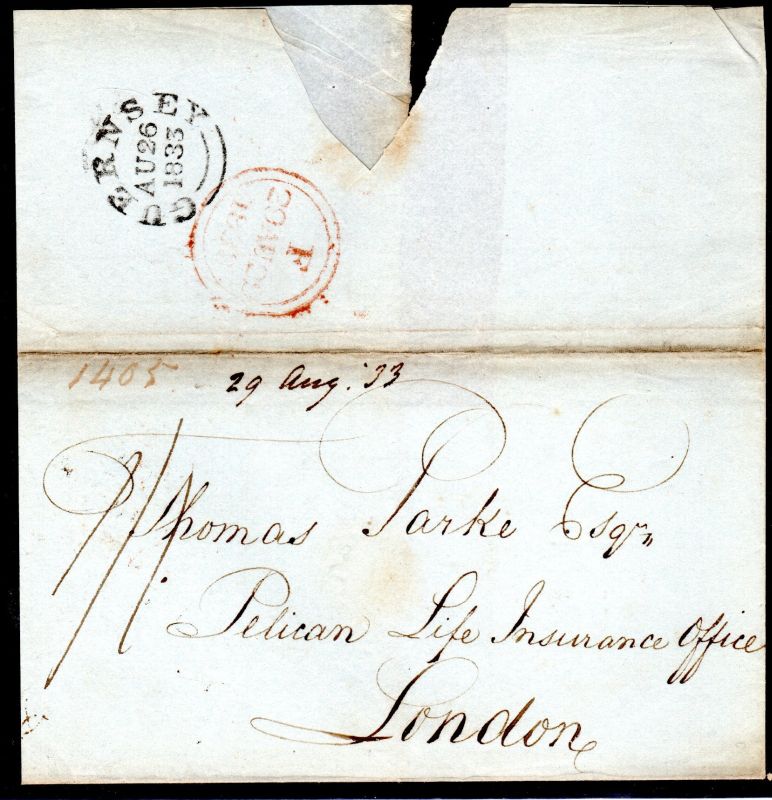 GUERNSEY
AU 26
1833
F
1405
29 Aug. '33
1/1
Thomas Parke Esqr.
Pelican Life Insurance Office
London